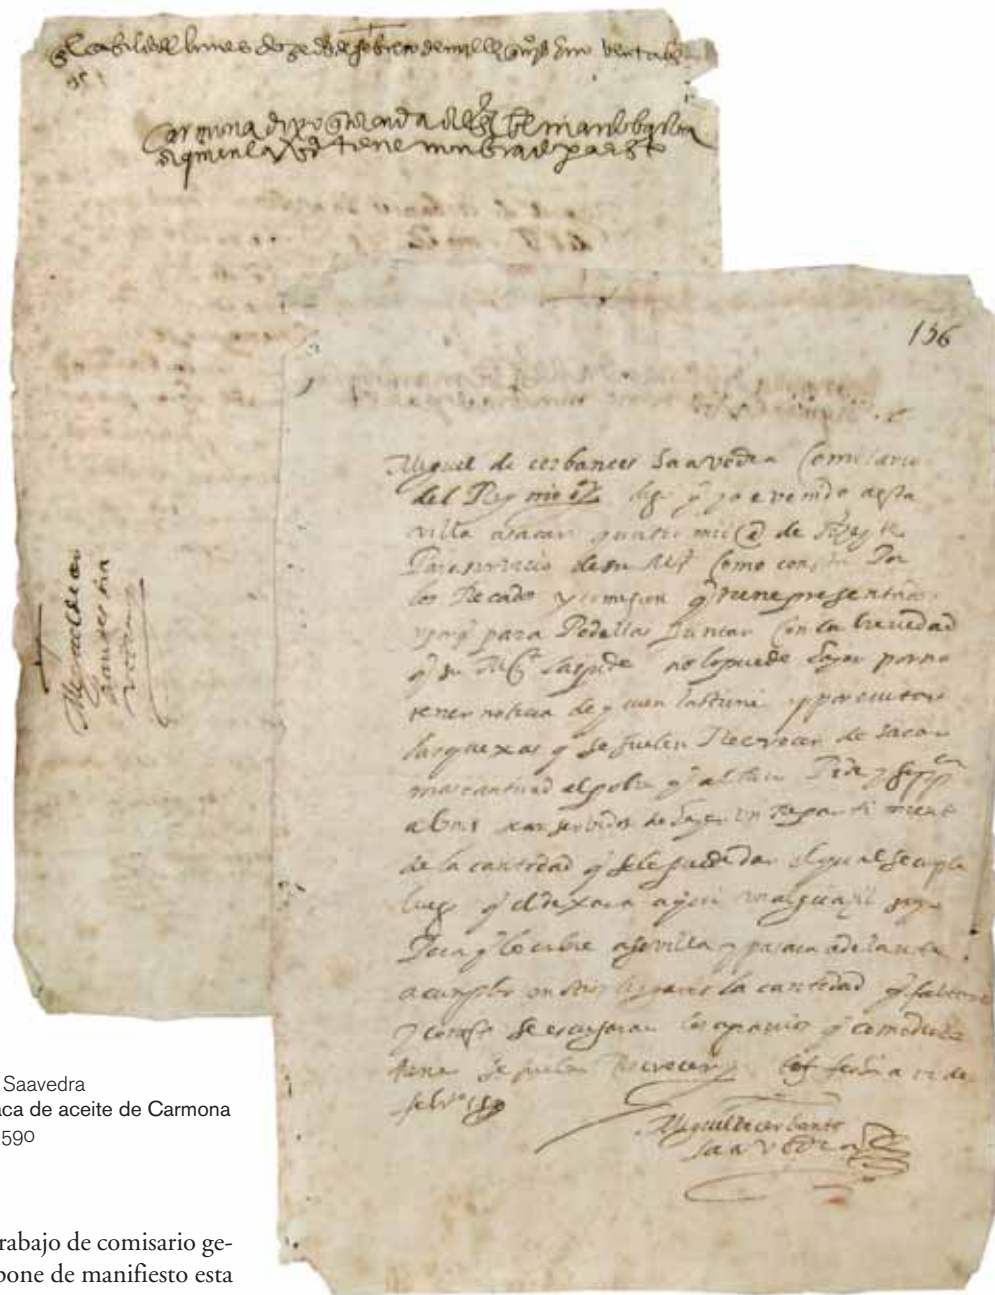 en cabildo lunes doze de hebrero de mill e quis e noventa
carmona
a quien la
tiene nonbrado para esto
Miguel de cer
bantes saa
vedra
136
Miguel de cerbantes Saavedra Comisario
del Rey nro sr digo q yo e venido a esta
villa a sacar quatro mil @ de Azeyte
Para servicio de su Mgt Como consta Por
los Recados y comision q tiene presentados
y porq para Podellas Juntar Con la brevedad
q su Mgt las pide no lo puede hazer por no
tener noticia de quien las tiene y por evitar
las quexas q se suelen Recrecer de sacar
mas cantidad al pobre q al Rico Pide y suppca
a Vms sean servidos de hazer un Repartimiento
de la cantidad q se le puede dar el qual se cunpla
luego q el dexara aqui un alguazil
q lo enbie a sevilla y pasara adelante
a cunplir en otros lugares la cantidad q faltare
y con esto se escusaran los agravios q comodicho
tiene se suelen Recrecer fecha a 12 de
febro 1590
Miguel de cerbantes
saavedra
Saavedra
aca de aceite de Carmona
590
rabajo de comisario ge-
pone de manifiesto esta